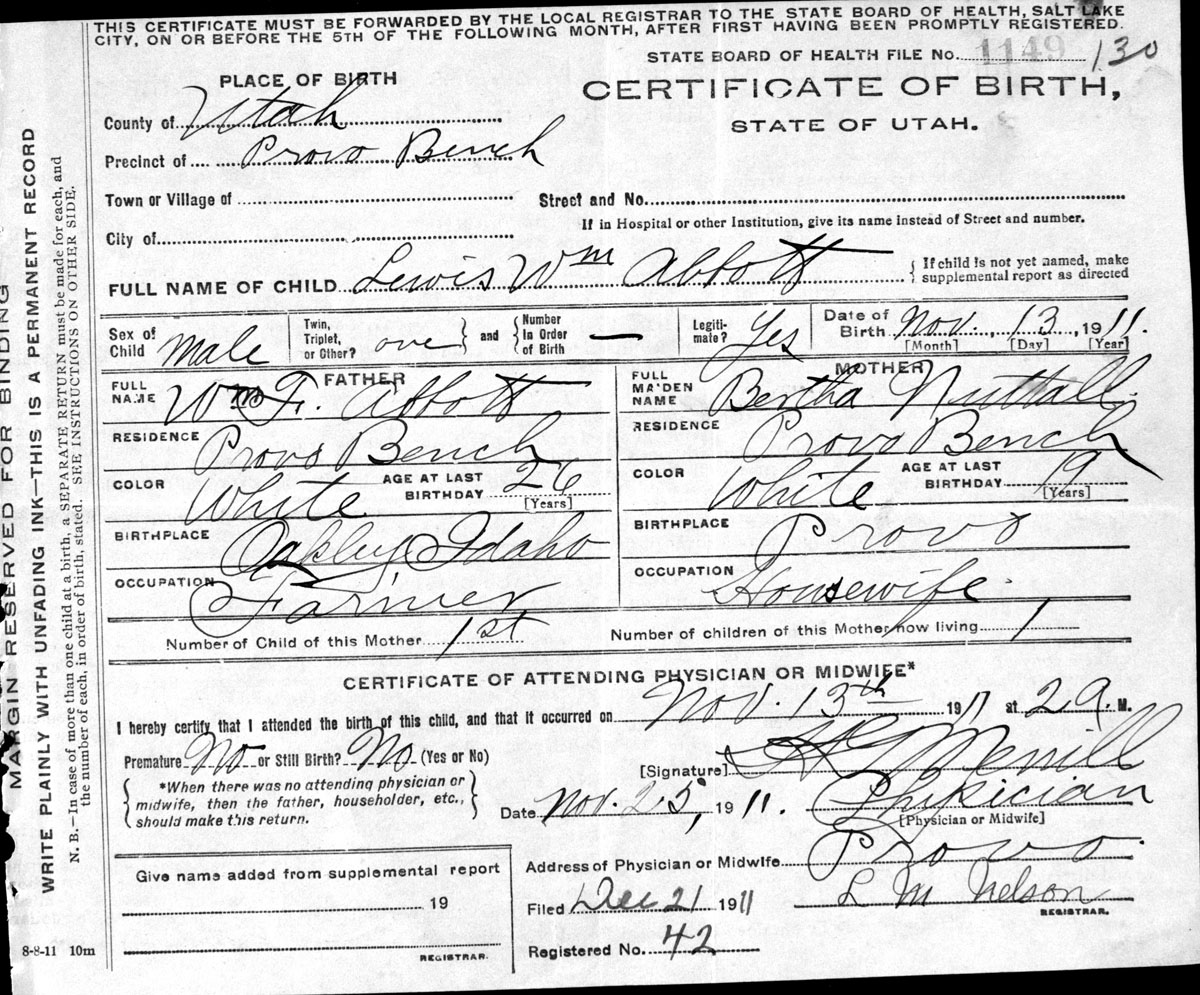 THIS CERTIFICATE MUST BE FORWARDED BY THE LOCAL REGISTRAR TO THE STATE BOARD OF HEALTH, SALT LAKE
CITY, ON OR BEFORE THE 5TH OF THE FOLLOWING MONTH, AFTER FIRST HAVING BEEN PROMPTLY REGISTERED.
STATE BOARD OF HEALTH FILE No. 1149 130
PLACE OF BIRTH
CERTIFICATE OF BIRTH,
STATE OF UTAH.
County of Utah
Precinct of Provo Bench
Town or Village of Street and No.
If in Hospital or other Institution, give its name instead of Street and number.
City of
FULL NAME OF CHILD Lewis Wm Abbott { If child is not yet named, make
supplemental report as directed
Sex of Child Male Twin, Triplet, or Other? one } and { Number In Order of Birth — Legiti-mate? Yes Date of Birth Nov. 13, 1911.
[Month] [Day] [Year]
FATHER MOTHER
FULL NAME Wm F. Abbott FULL MAIDEN NAME Bertha Nuttall
RESIDENCE Provo Bench RESIDENCE Provo Bench
COLOR White AGE AT LAST BIRTHDAY 26 [Years] COLOR White AGE AT LAST BIRTHDAY 19 [Years]
BIRTHPLACE Oakley Idaho BIRTHPLACE Provo
OCCUPATION Farmer OCCUPATION Housewife.
Number of Child of this Mother 1st Number of children of this Mother now living 1
CERTIFICATE OF ATTENDING PHYSICIAN OR MIDWIFE*
I hereby certify that I attended the birth of this child, and that it occurred on Nov. 13th 1911 at 2 a. M.
Premature No or Still Birth? No (Yes or No)
[Signature] Merrill
{ *When there was no attending physician or
midwife, then the father, householder, etc.,
should make this return. }
Date Nov. 25, 1911. Physician
[Physician or Midwife]
Address of Physician or Midwife Provo.
Give name added from supplemental report
19
REGISTRAR.
Filed Dec 21 1911 L M Nelson
REGISTRAR.
Registered No. 42
8-8-11 10m
MARGIN RESERVED FOR BINDING
WRITE PLAINLY WITH UNFADING INK—THIS IS A PERMANENT RECORD
N. B.—In case of more than one child at a birth, a SEPARATE RETURN must be made for each, and
the number of each, in order of birth, stated. SEE INSTRUCTIONS ON OTHER SIDE.